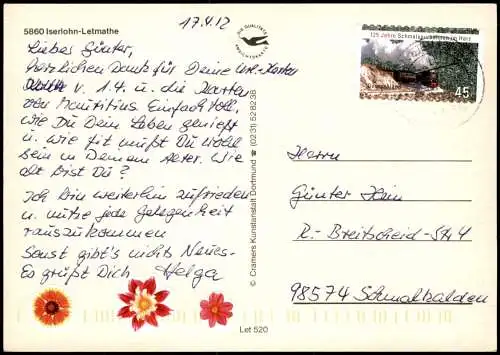 17.4.12
5860 Iserlohn-Letmathe
DIE QUALITÄTS
ANSICHTSKARTE
125 Jahre Schmalspurbahnen im Harz
45
Lieber Günter,
herzlichen Dank für Deine Karten
v. 1.4. u. die Karten
von Mauritius. Einfach toll,
wie Du Dein Leben genießt
u. wie fit mußt Du wohl
sein in Deinem Alter. Wie
alt bist Du?
Ich bin weiterhin zufrieden
u. nutze jede Gelegenheit
rauszukommen
Sonst gibt's nichts Neues-
Es grüßt Dich Helga
© Cramers Kunstanstalt Dortmund ☎ (0231) 52 82 38
Herrn
Günter Hein
R.-Breitscheid-Str 4
98574 Schmalkalden
Let 520